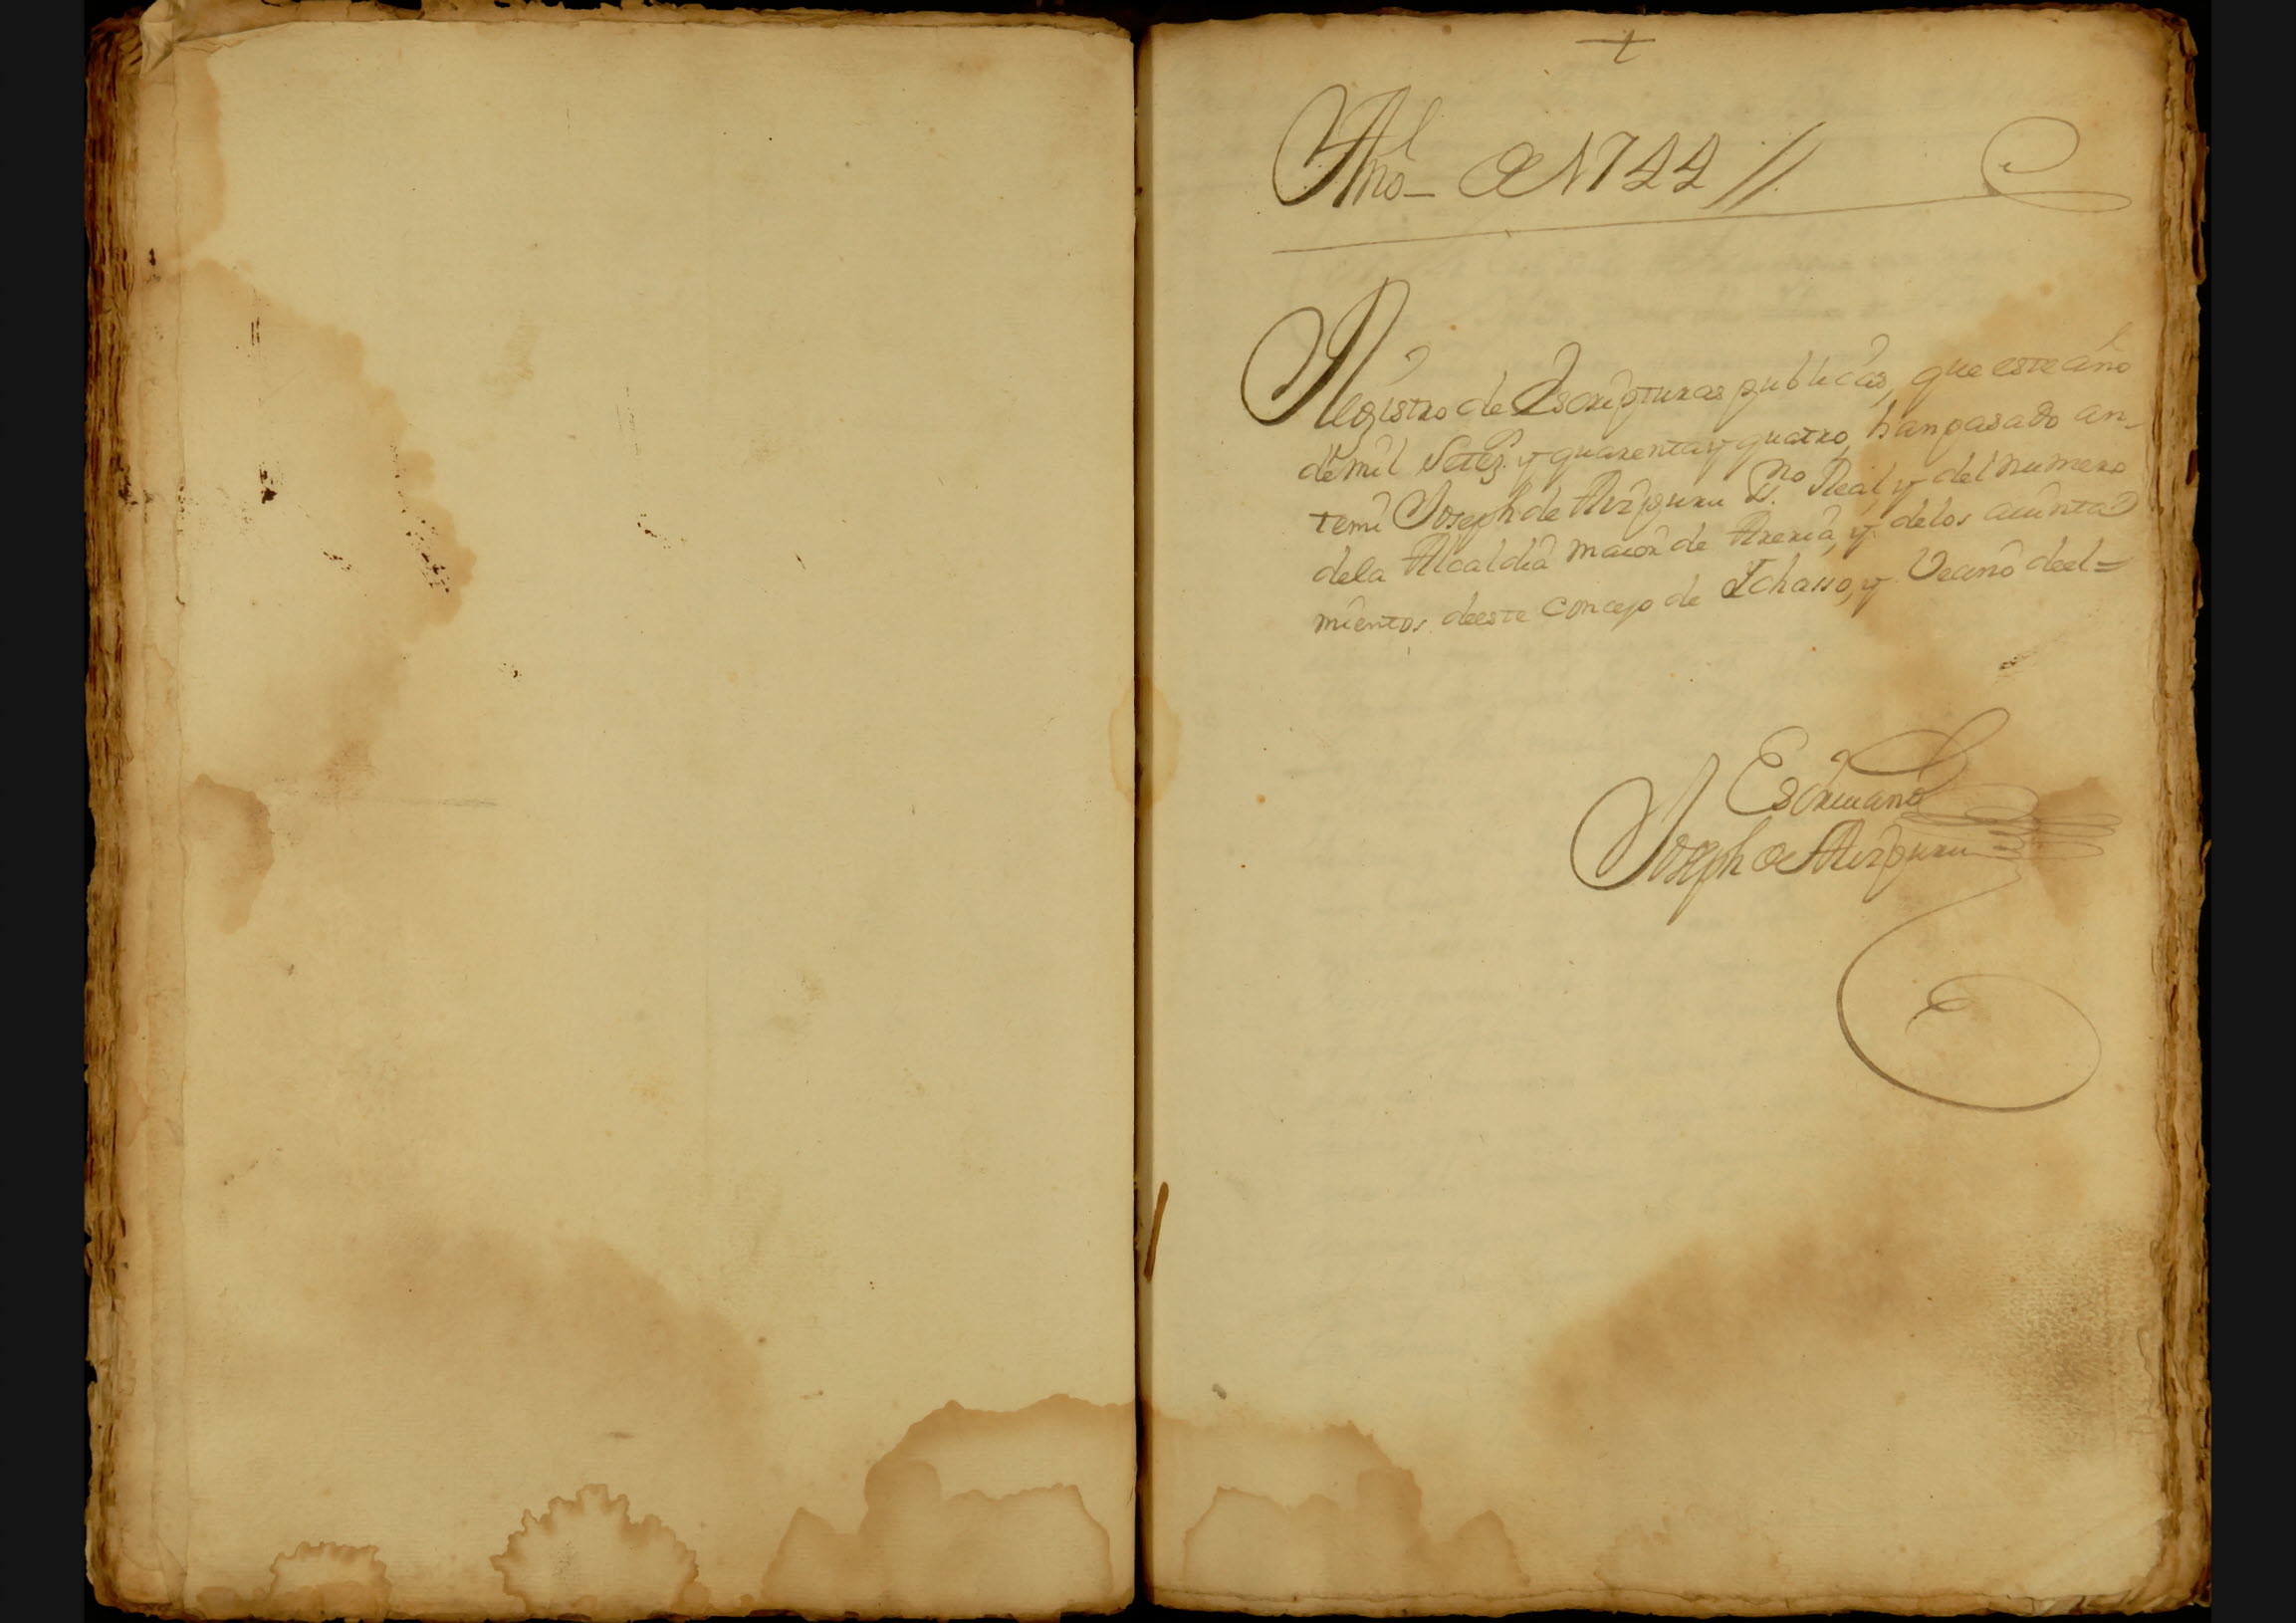 +
Año de 1744 //
Registro de Escripturas publicas, que este año
de mil Setez.s y quarenta y quatro, han pasado an-
temi Joseph de Aizpuru Ess.no Real, y del numero
dela Alcaldia maior de Areria, y de los aiunta
mientos deeste concejo de Ichasso, y Vecino deel =
Escriuano
Joseph de Aizpuru